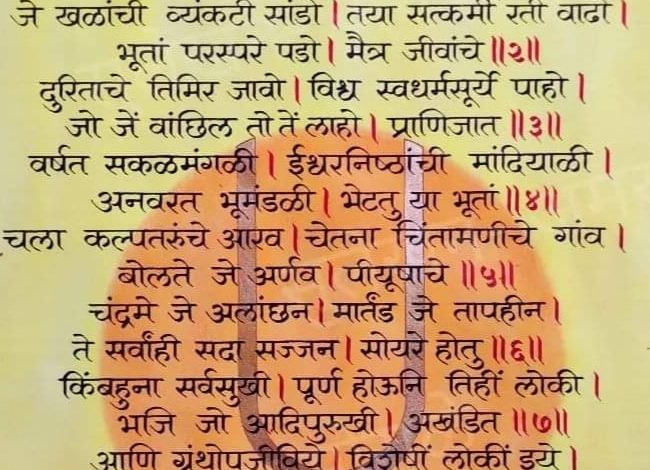 जे खळांची व्यंकटी सांडो | तया सत्कर्मी रती वाढो |
भूतां परस्परे पडो | मैत्र जीवांचे ||२||
दुरिताचे तिमिर जावो | विश्व स्वधर्मसूर्ये पाहो |
जो जें वांछिल तो तें लाहो | प्राणिजात ||३||
वर्षत सकळमंगळी | ईश्वरनिष्ठांची मांदियाळी |
अनवरत भूमंडळी | भेटतु या भूतां ||४||
चला कल्पतरुंचे आरव | चेतना चिंतामणीचे गांव |
बोलते जे अर्णव | पीयूषाचे ||५||
चंद्रमे जे अलांछन | मार्तंड जे तापहीन |
ते सर्वांही सदा सज्जन | सोयरे होतु ||६||
किंबहुना सर्वसुखी | पूर्ण होऊनि तिहीं लोकी |
भजि जो आदिपुरुखी | अखंडित ||७||
आणि ग्रंथोपजीविये | विशेषीं लोकीं इये |